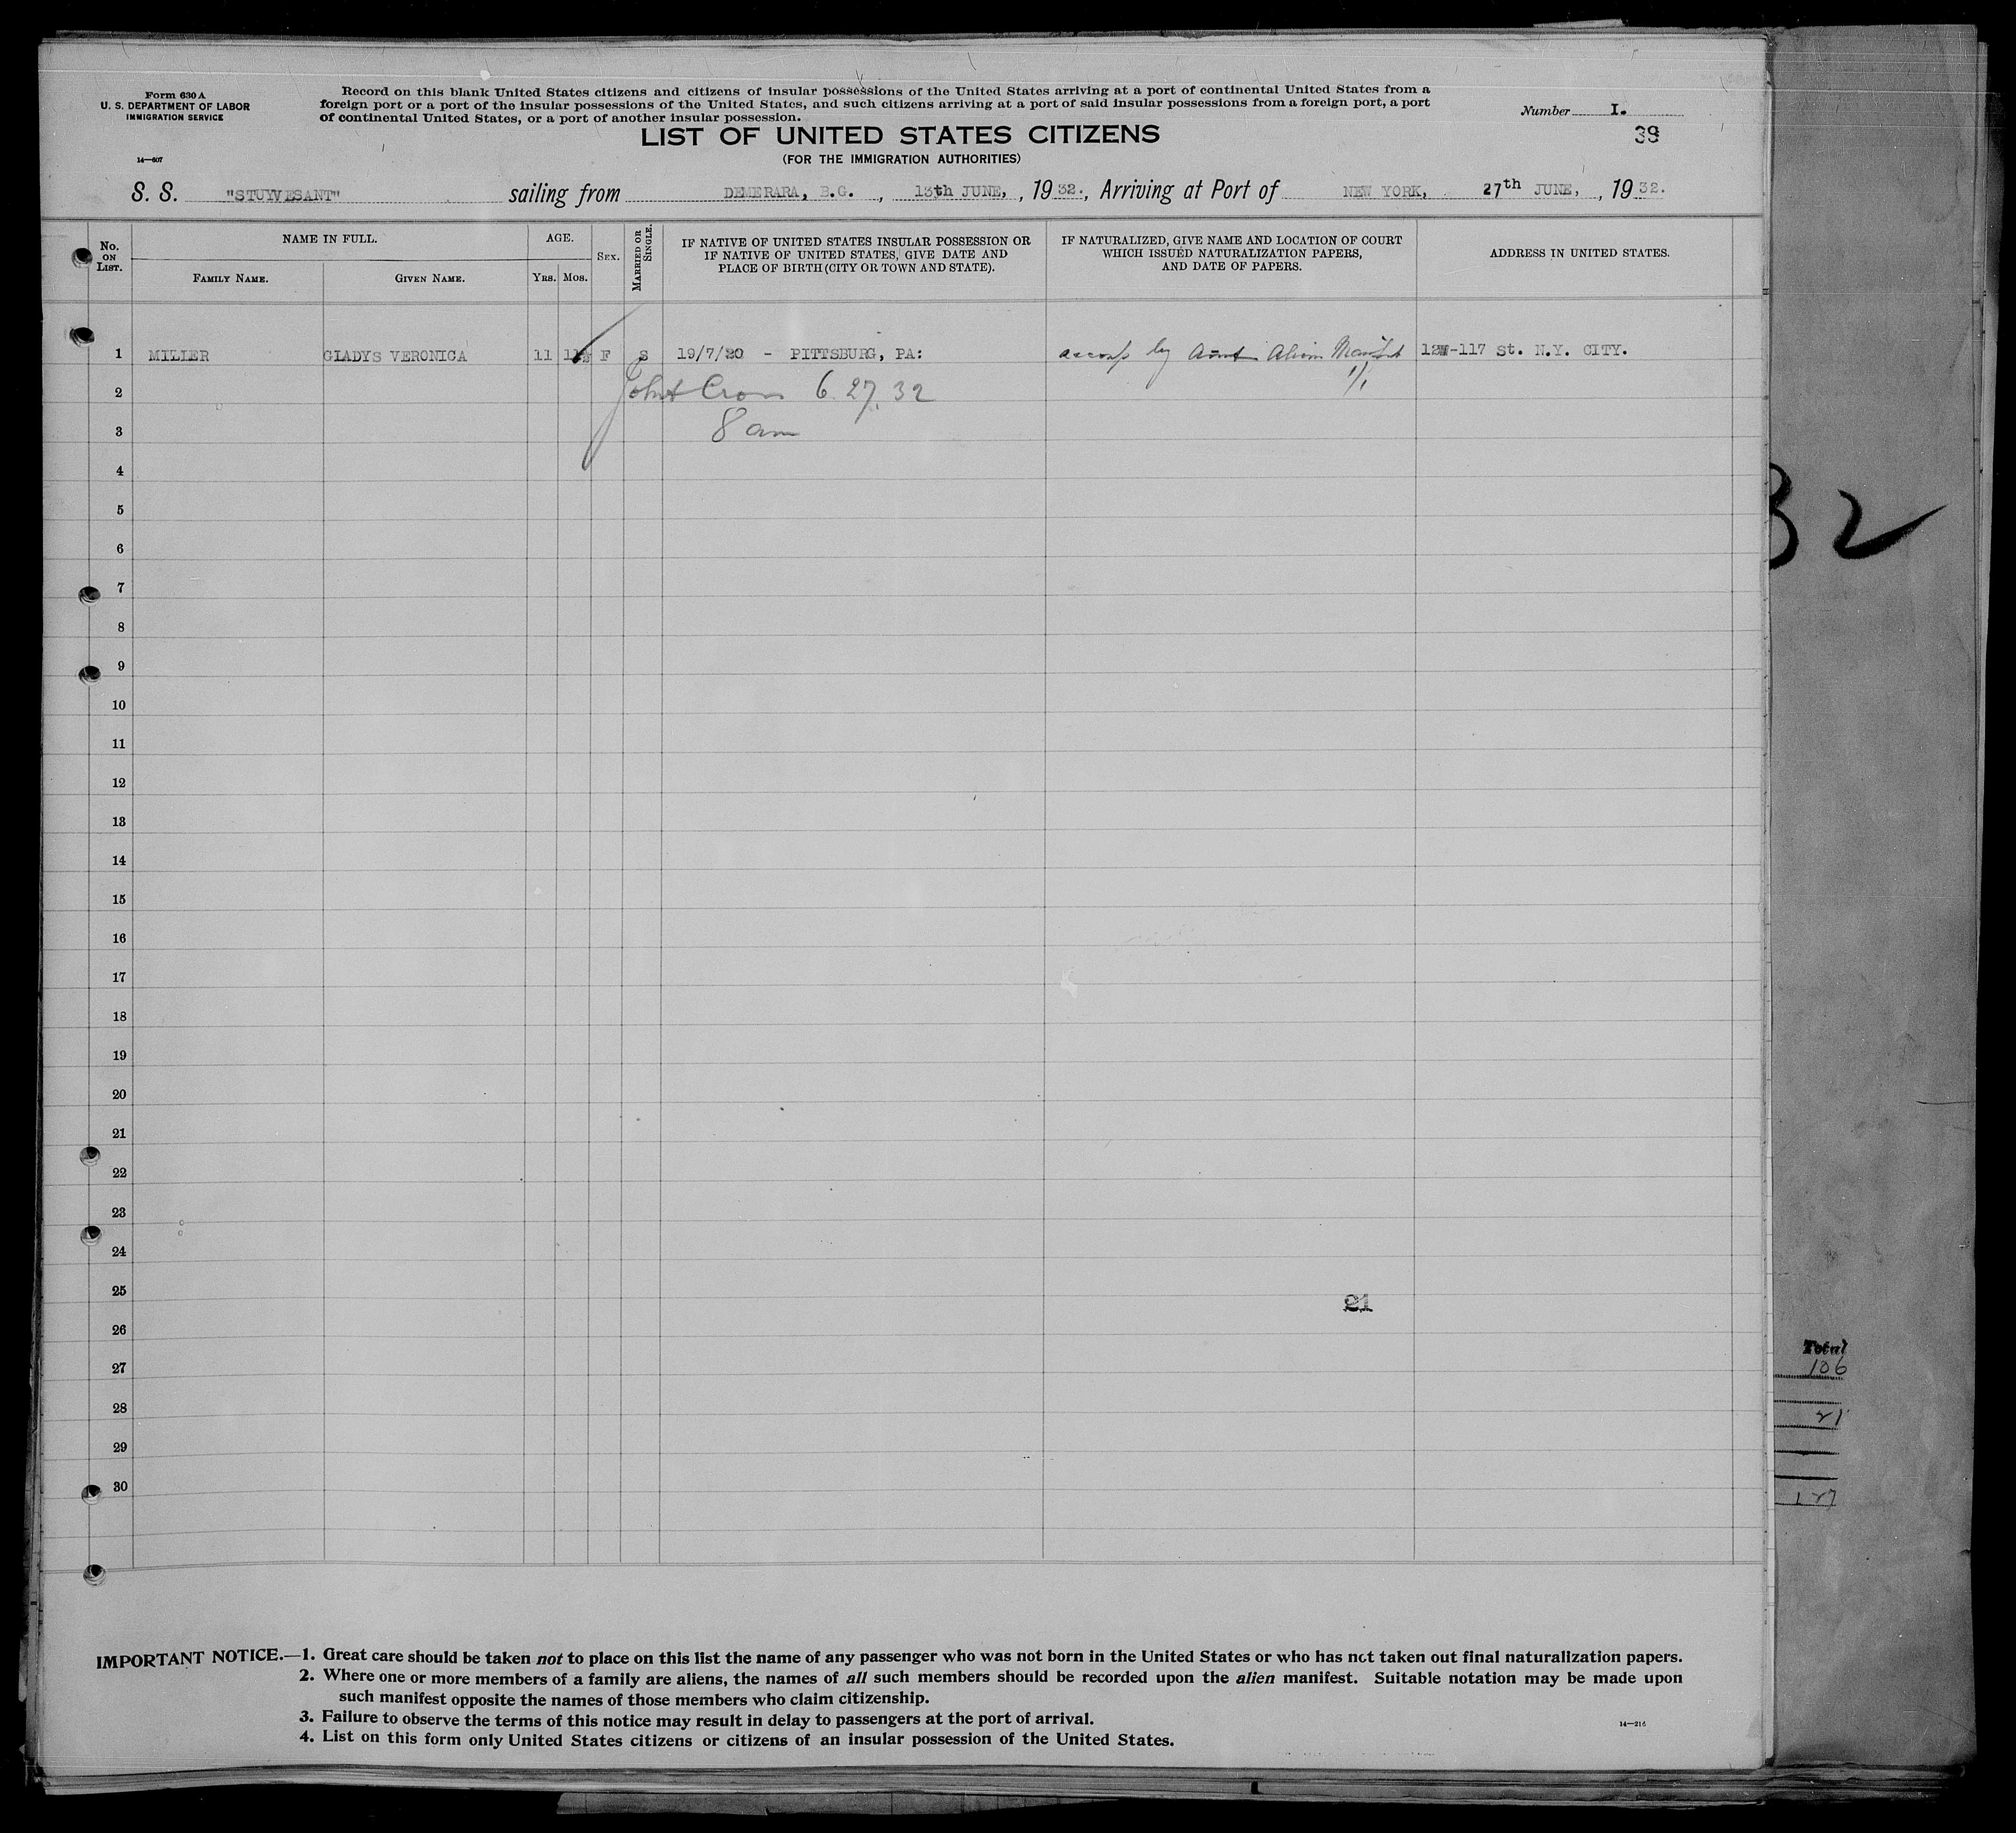 Form 630 A
U. S. DEPARTMENT OF LABOR
IMMIGRATION SERVICE
14—607
Record on this blank United States citizens and citizens of insular possessions of the United States arriving at a port of continental United States from a
foreign port or a port of the insular possessions of the United States, and such citizens arriving at a port of said insular possessions from a foreign port, a port
of continental United States, or a port of another insular possession.
Number I.
38
LIST OF UNITED STATES CITIZENS
(FOR THE IMMIGRATION AUTHORITIES)
S. S. "STUYVESANT" sailing from DEMERARA, B.G. , 13th JUNE, , 19 32. , Arriving at Port of NEW YORK, 27th JUNE, , 19 32.
No. ON LIST.
NAME IN FULL.
FAMILY NAME.
GIVEN NAME.
AGE.
YRS.
MOS.
SEX.
MARRIED OR SINGLE.
IF NATIVE OF UNITED STATES INSULAR POSSESSION OR
IF NATIVE OF UNITED STATES, GIVE DATE AND
PLACE OF BIRTH (CITY OR TOWN AND STATE).
IF NATURALIZED, GIVE NAME AND LOCATION OF COURT
WHICH ISSUED NATURALIZATION PAPERS,
AND DATE OF PAPERS.
ADDRESS IN UNITED STATES.
1 MILLER GLADYS VERONICA 11 F S 19/7/20 - PITTSBURG, PA: accomp by Aunt Alien Manifest 12W-117 st. N.Y. CITY.
1/1
2 6.27.32
3 8 am
4
5
6
7
8
9
10
11
12
13
14
15
16
17
18
19
20
21
22
23
24
25
21
26
27
28
29
30
32
Total
106
21
127
IMPORTANT NOTICE.—1. Great care should be taken not to place on this list the name of any passenger who was not born in the United States or who has not taken out final naturalization papers.
2. Where one or more members of a family are aliens, the names of all such members should be recorded upon the alien manifest. Suitable notation may be made upon
such manifest opposite the names of those members who claim citizenship.
3. Failure to observe the terms of this notice may result in delay to passengers at the port of arrival.
4. List on this form only United States citizens or citizens of an insular possession of the United States.
14—216